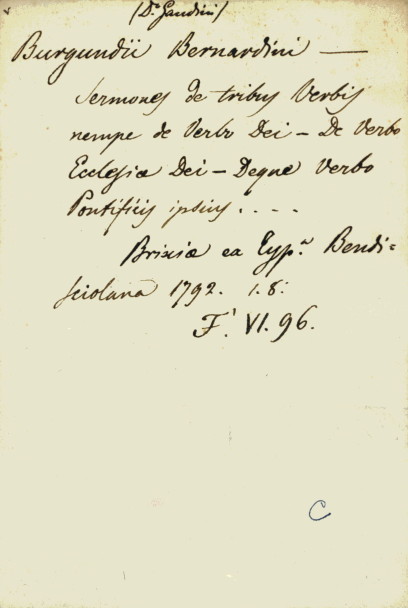 (Dº Gaudini)
Burgundii Bernardini —
Sermones de tribus Verbis
nempe de Verbo Dei – De Verbo
Ecclesiæ Dei – Deque Verbo
Pontificis ipsius . . . .
Brixiæ ea Typ.ª Bendi=
sciolana 1792. 1.8.
F.' VI. 96.
C